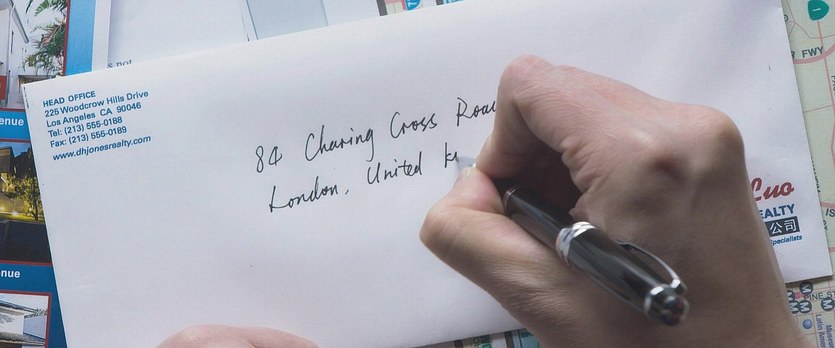 HEAD OFFICE
225 Woodcrow Hills Drive
Los Angeles CA 90046
Tel: (213) 555-0188
Fax: (213) 555-0189
www.dhjonesrealty.com
84 Charing Cross Roa
London, United K
Luo
EALTY
公司
pecialists
s not
enue
enue
FWY
PINE ST